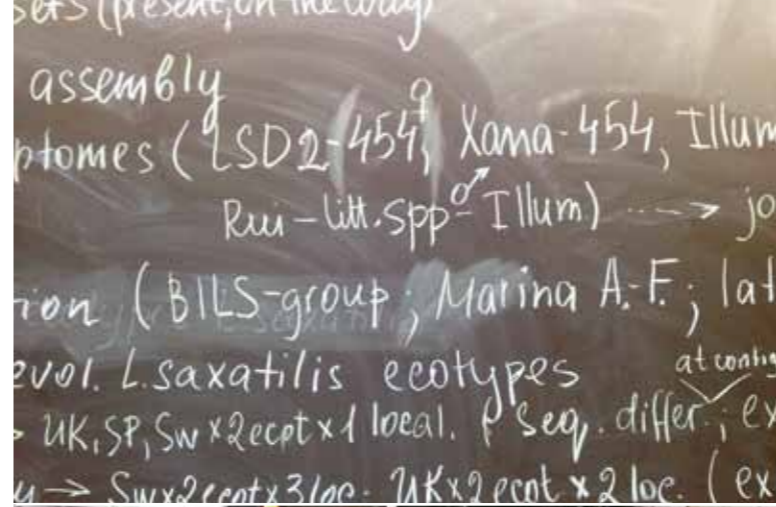 sets (present, on the way)
assembly
ptomes (LSD2-454♀, Xana-454, Illum
Rui-litt.spp♂-Illum) ----> jo
ion (BILS-group; Marina A.-F.; lat
evol. L.saxatilis ecotypes at contig
> UK, SP, Sw x 2ecot x 1 local. Seq. differ.; ex
→ Sw x 2ecot x 3loc. UK x 2 ecot x 2 loc. (ex